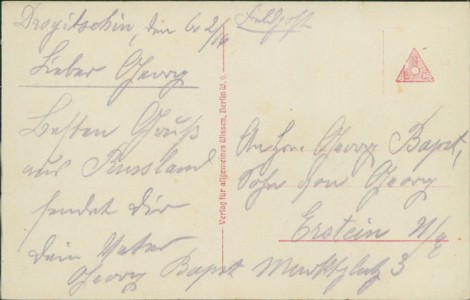 Drogitschin, den 6. 2/16
Feldpost
Lieber Georg
Besten Gruß
aus Russland
sendet dir
dein Vater
Georg Bapst
An Hrn. Georg Bapst,
Sohn von Georg
Erstein U/E
Marktplatz 3
Verlag für allgemeines Wissen, Berlin W. 9.